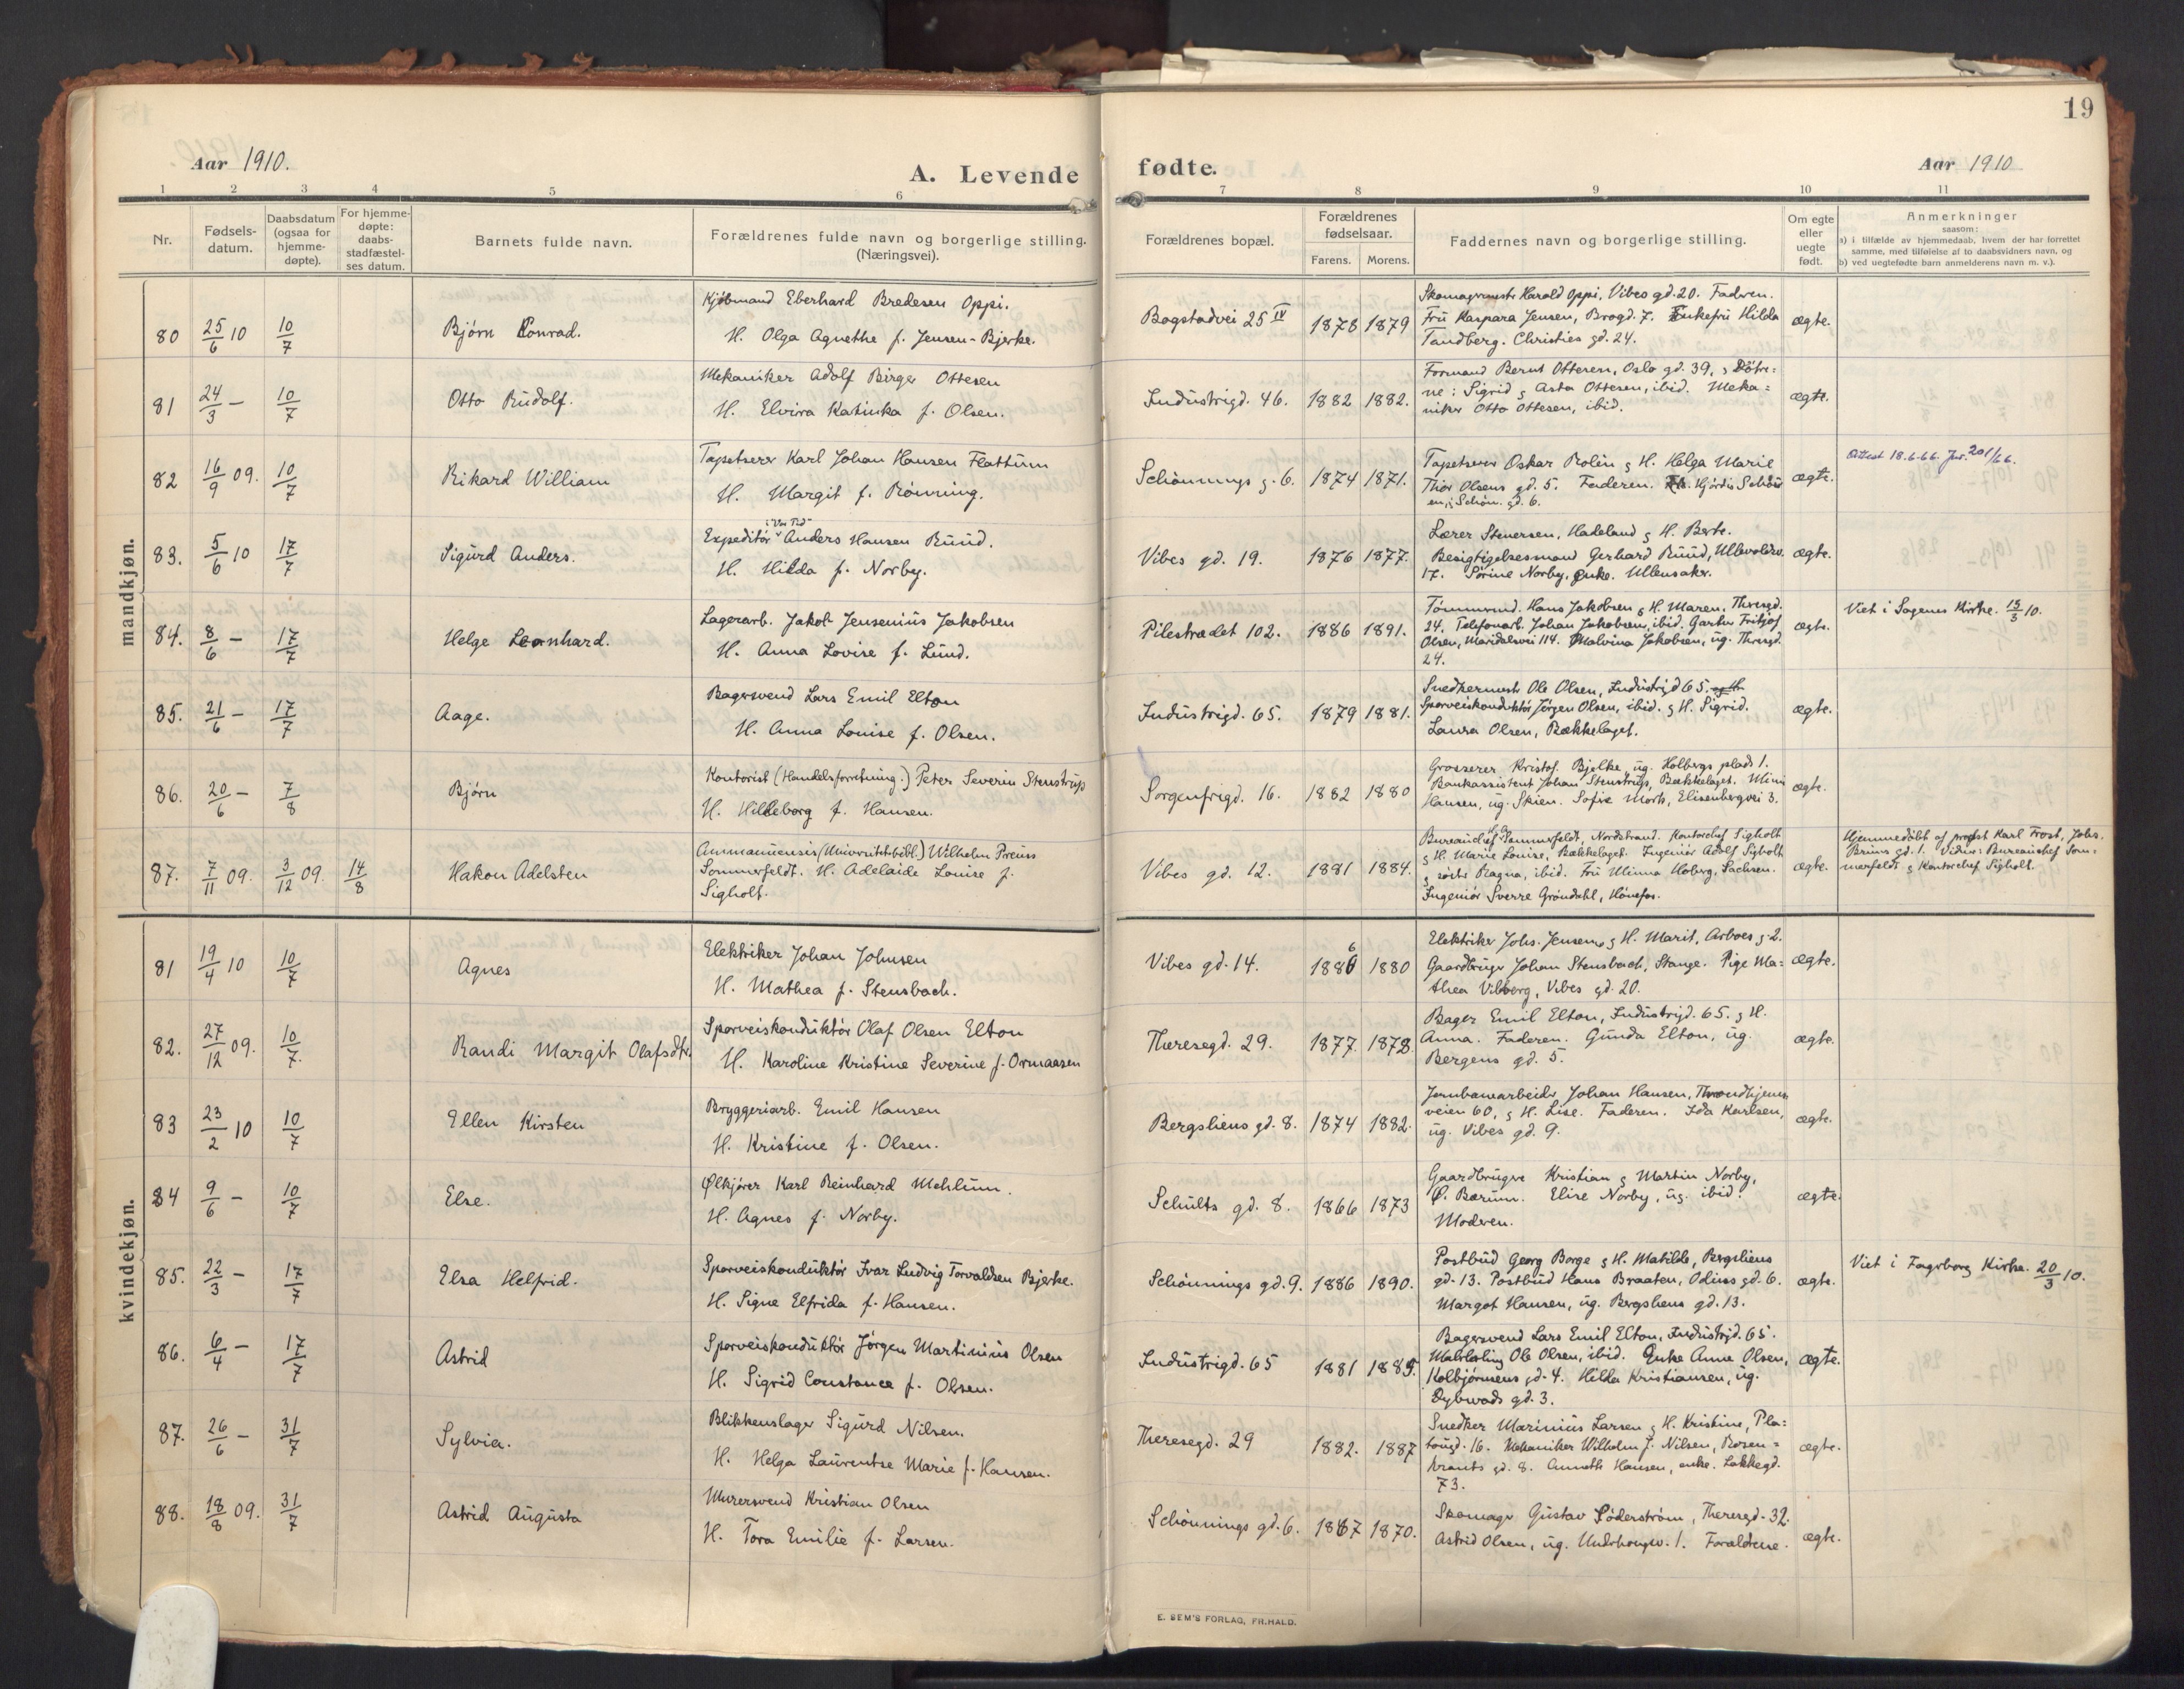 19
Aar 1910.
A. Levende
fødte.
Aar 1910
1 2 3 4 5 6 7 8 9 10 11
Nr.
Fødsels-
datum.
Daabsdatum
(ogsaa for
hjemme-
døpte).
For hjemme-
døpte:
daabs-
stadfæstel-
ses datum.
Barnets fulde navn.
Forældrenes fulde navn og borgerlige stilling.
(Næringsvei).
Forældrenes bopæl.
Forældrenes
fødselsaar.
Farens. Morens.
Faddernes navn og borgerlige stilling.
Om egte
eller
uegte
født.
Anmerkninger
saasom:
a) i tilfælde av hjemmedaab, hvem der har forrettet
samme, med tilføielse af to daabsvidners navn, og
b) ved uegtefødte barn anmelderens navn m. v.).
mandkjøn.
80 25/6 10 10/7 Bjørn Konrad.
Kjøbmand Eberhard Bredesen Oppi.
H. Olga Agnethe f. Jensen-Bjerke.
Bogstadvei 25 IV 1878 1879
Skomagermestr Harald Oppi, Vibes gd. 20. Faderen.
Frü Kaspara Jensen, Brogd. 7. Enkefrü Hilda
Tandberg. Christies gd. 24.
ægte.
81 24/3 — 10/7 Otto Rüdolf.
Mekaniker Adolf Birger Ottesen
H. Elvira Katinka f. Olsen.
Indüstrigd. 46. 1882 1882.
Formand Bernt Ottesen, Oslo gd. 39, & Døtre=
ne: Sigrid & Asta Ottesen, ibid. Meka=
niker Otto Ottesen, ibid.
ægte.
82 16/9 09. 10/7 Rikard William
Tapetserer Karl Johan Hansen Flattüm
H. Margit f. Rønning.
Schönnings g. 6. 1874 1871.
Tapetserer Oskar Rolin & H. Helga Marie
Thor Olsens gd. 5. Faderen. Hjördis
en, Schön. gd. 6.
ægte.
Attest 18.6.66. Jnr. 201/66.
83. 5/6 10 17/7 Sigürd Anders.
Expeditör i "Vor Tid" Anders Hansen Rüüd.
H. Hilda f. Norby.
Vibes gd. 19. 1876 1877.
Lærer Stenersen, Hadeland & H. Berte.
Besigtigelsesmand Gerhard Rüüd, Ullevoldsv.
17. Sörine Norby, enke. Ullensaker.
ægte.
84. 8/6 — 17/7 Helge Leonhard.
Lagerarb. Jakob Jenseniüs Jakobsen
H. Anna Lovise f. Lünd.
Pilestrædet 102. 1886 1891.
Tømmermd. Hans Jakobsen & H. Maren, Theresgd.
24. Telefonarb. Johan Jakobsen, ibid. Gartner Fritjof
Olsen, Maridalsvei 114. Malvina Jakobsen, üg. Theresgd.
24.
ægte.
Viet i Sagenes Kirke. 13/3 10.
85. 21/6 — 17/7 Aage.
Bagersvend Lars Emil Elton
H. Anna Louise f. Olsen.
Indüstrigd. 65. 1879 1881.
Snedkermestr Ole Olsen, Indüstrigd 65.
Sporveiskondüktör Jörgen Olsen, ibid. & H. Sigrid.
Laura Olsen, Bækkelaget.
ægte.
86. 20/6 — 7/8 Bjørn
Kontorist (Handelsforretning.) Peter Severin Stenstrüp
H. Hildeborg f. Hansen.
Sorgenfrigd. 16. 1882 1880
Grosserer Kristof. Bjelke, üg. Holbergs plads 1.
Bankassistent Johan Stenstrüp, Bækkelaget. Mimi
Hansen, üg. Skien. Sofie Mork, Elisenbergvei 3.
ægte.
87. 7/11 09. 3/12 09. 14/8 Hakon Adelsten
Ammanüensis (Universitetsbibl.) Wilhelm Preüss
Sommerfeldt. H. Adelaide Louise f.
Sigholt.
Vibes gd. 12. 1881 1884.
Büreauchef Sommerfeldt, Nordstrand. Kontorchef Sigholt
& H. Marie Louise, Bækkelaget. Ingeniør Adolf Sigholt
& søster Ragna, ibid. Frü Minna Hoberg, Sachsen.
Ingeniør Sverre Gröndahl, Hönefos.
ægte.
Hjemmedøbt af prest Karl Frost, Johs.
Brüns gd. 1. Vidner: Büreauchef Som=
merfeldt & Kontorchef Sigholt.
kvindekjøn.
81 19/4 10 10/7 Agnes
Elektriker Johan Johnsen
H. Mathea f. Stensbach.
Vibes gd. 14. 1886 6 1880
Elektriker Johs. Jensen & H. Marit, Arboes g. 2.
Gaardbrüger Johan Stensbach, Stange. Pige Ma=
thea Vilberg, Vibes gd. 20.
ægte.
82. 27/12 09. 10/7. Randi Margit Olafsdtr.
Sporveiskondüktör Olaf Olsen Elton
H. Karoline Kristine Severine f. Ormaasen
Theresegd. 29. 1877. 1878.
Bager Emil Elton, Indüstrigd. 65. & H.
Anna. Faderen. Günda Elton, üg.
Bergens gd. 5.
ægte.
83 23/2 10 10/7 Ellen Kirsten
Bryggeriarb. Emil Hansen
H. Kristine f. Olsen.
Bergsliens gd. 8. 1874 1882.
Jernbanearbeider Johan Hansen, Throndhjems
veien 60, & H. Lise. Faderen. Ida Karlsen,
üg. Vibes gd. 9.
ægte.
84 9/6 — 10/7 Else.
Ølkjører Karl Reinhard Mehlüm.
H. Agnes f. Norby.
Schülts gd. 8. 1866 1873
Gaardbrügere Kristian & Martin Norby,
Ø. Bærüm. Elise Norby, üg. ibid.
Moderen.
ægte.
85. 22/3 — 17/7 Elsa Helfrid.
Sporveiskondüktör Ivar Ludvig Torvaldsen Bjerke.
H. Signe Elfrida f. Hansen.
Schönnings gd. 9. 1886 1890.
Postbüd Georg Borge & H. Matilde, Bergsliens
gd. 13. Postbüd Hans Braaten, Odins gd. 6.
Margot Hansen, üg. Bergsliens gd. 13.
ægte.
Viet i Fagerborg Kirke. 20/3 10.
86. 6/4 — 17/7 Astrid
Sporveiskondüktör Jørgen Martiniüs Olsen
H. Sigrid Constance f. Olsen.
Indüstrigd. 65 1881 1885.
Bagersvend Lars Emil Elton, Indüstrigd. 65.
Ole Olsen, ibid. Enke Anne Olsen,
Kolbjørnsens gd. 4. Hilda Kristiansen, üg.
Dybwads gd. 3.
ægte.
87. 26/6 — 31/7 Sylvia.
Blikkenslager Sigürd Nilsen.
H. Helga Laürentse Marie f. Hansen.
Theresegd. 29 1882. 1887
Snedker Mariniüs Larsen & H. Kristine, Pla=
toügd. 16. Mekaniker Wilhelm J. Nilsen, Rosen=
krants gd. 8. Anneth Hansen, enke. Lakkegd.
73.
ægte.
88. 18/8 09. 31/7 Astrid Aügüsta
Mürersvend Kristian Olsen
H. Tora Emilie f. Larsen.
Schönnings gd. 6. 1867 1870.
Skomager Güstav Söderström, Theresegd. 32.
Astrid Olsen, üg. Underhaugsv. 1. Forældrene.
ægte.
E. SEM'S FORLAG, FR.HALD.